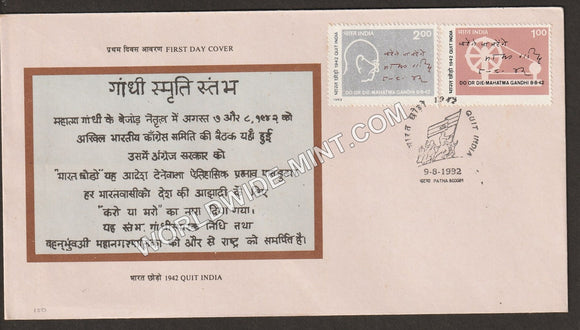 प्रथम दिवस आवरण FIRST DAY COVER
भारत INDIA 2.00
भारत छोड़ो 1942 QUIT INDIA
करेंगे या मरेंगे
DO OR DIE-MAHATMA GANDHI 8-8-42
भारत INDIA 1.00
भारत छोड़ो 1942 QUIT INDIA
करेंगे या मरेंगे
DO OR DIE-MAHATMA GANDHI 8-8-42
भारत छोड़ो 1942 QUIT INDIA
9-8-1992
पटना PATNA 800001
गांधी स्मृति स्तंभ
महात्मा गांधी के बेजोड़ नेतृत्व में अगस्त ७ और ८, १९४२ को
अखिल भारतीय काँग्रेस समिति की बैठक यहाँ हुई
उसमें अंग्रेज सरकार को
"भारत छोड़ो" यह आदेश देनेवाला ऐतिहासिक प्रस्ताव
हर भारतवासीको देश की आझादी के लिए
"करो या मरो" का नारा दिया गया।
यह स्तंभ, गांधी स्मारक निधि तथा
बृहन्मुंबई महानगरपालिका की ओर से राष्ट्र को समर्पित है।
भारत छोड़ो 1942 QUIT INDIA
WORLDWIDE MINT.COM